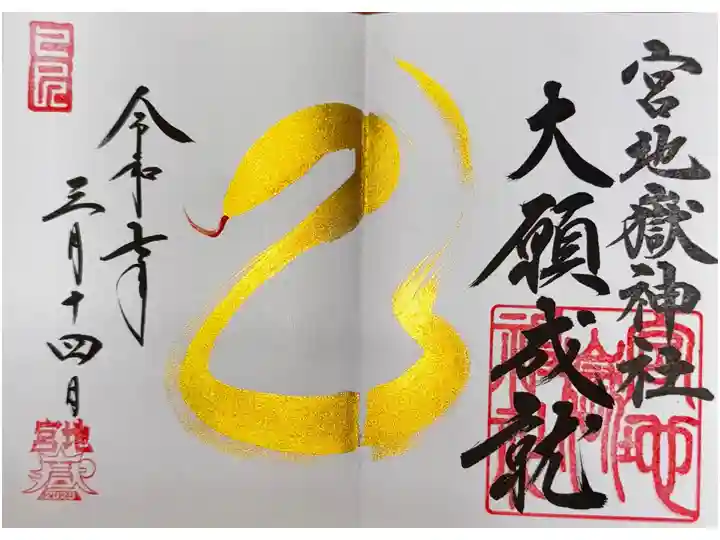 宮地嶽神社
大願成就
令和七年
三月十四日
乙巳
宮地嶽